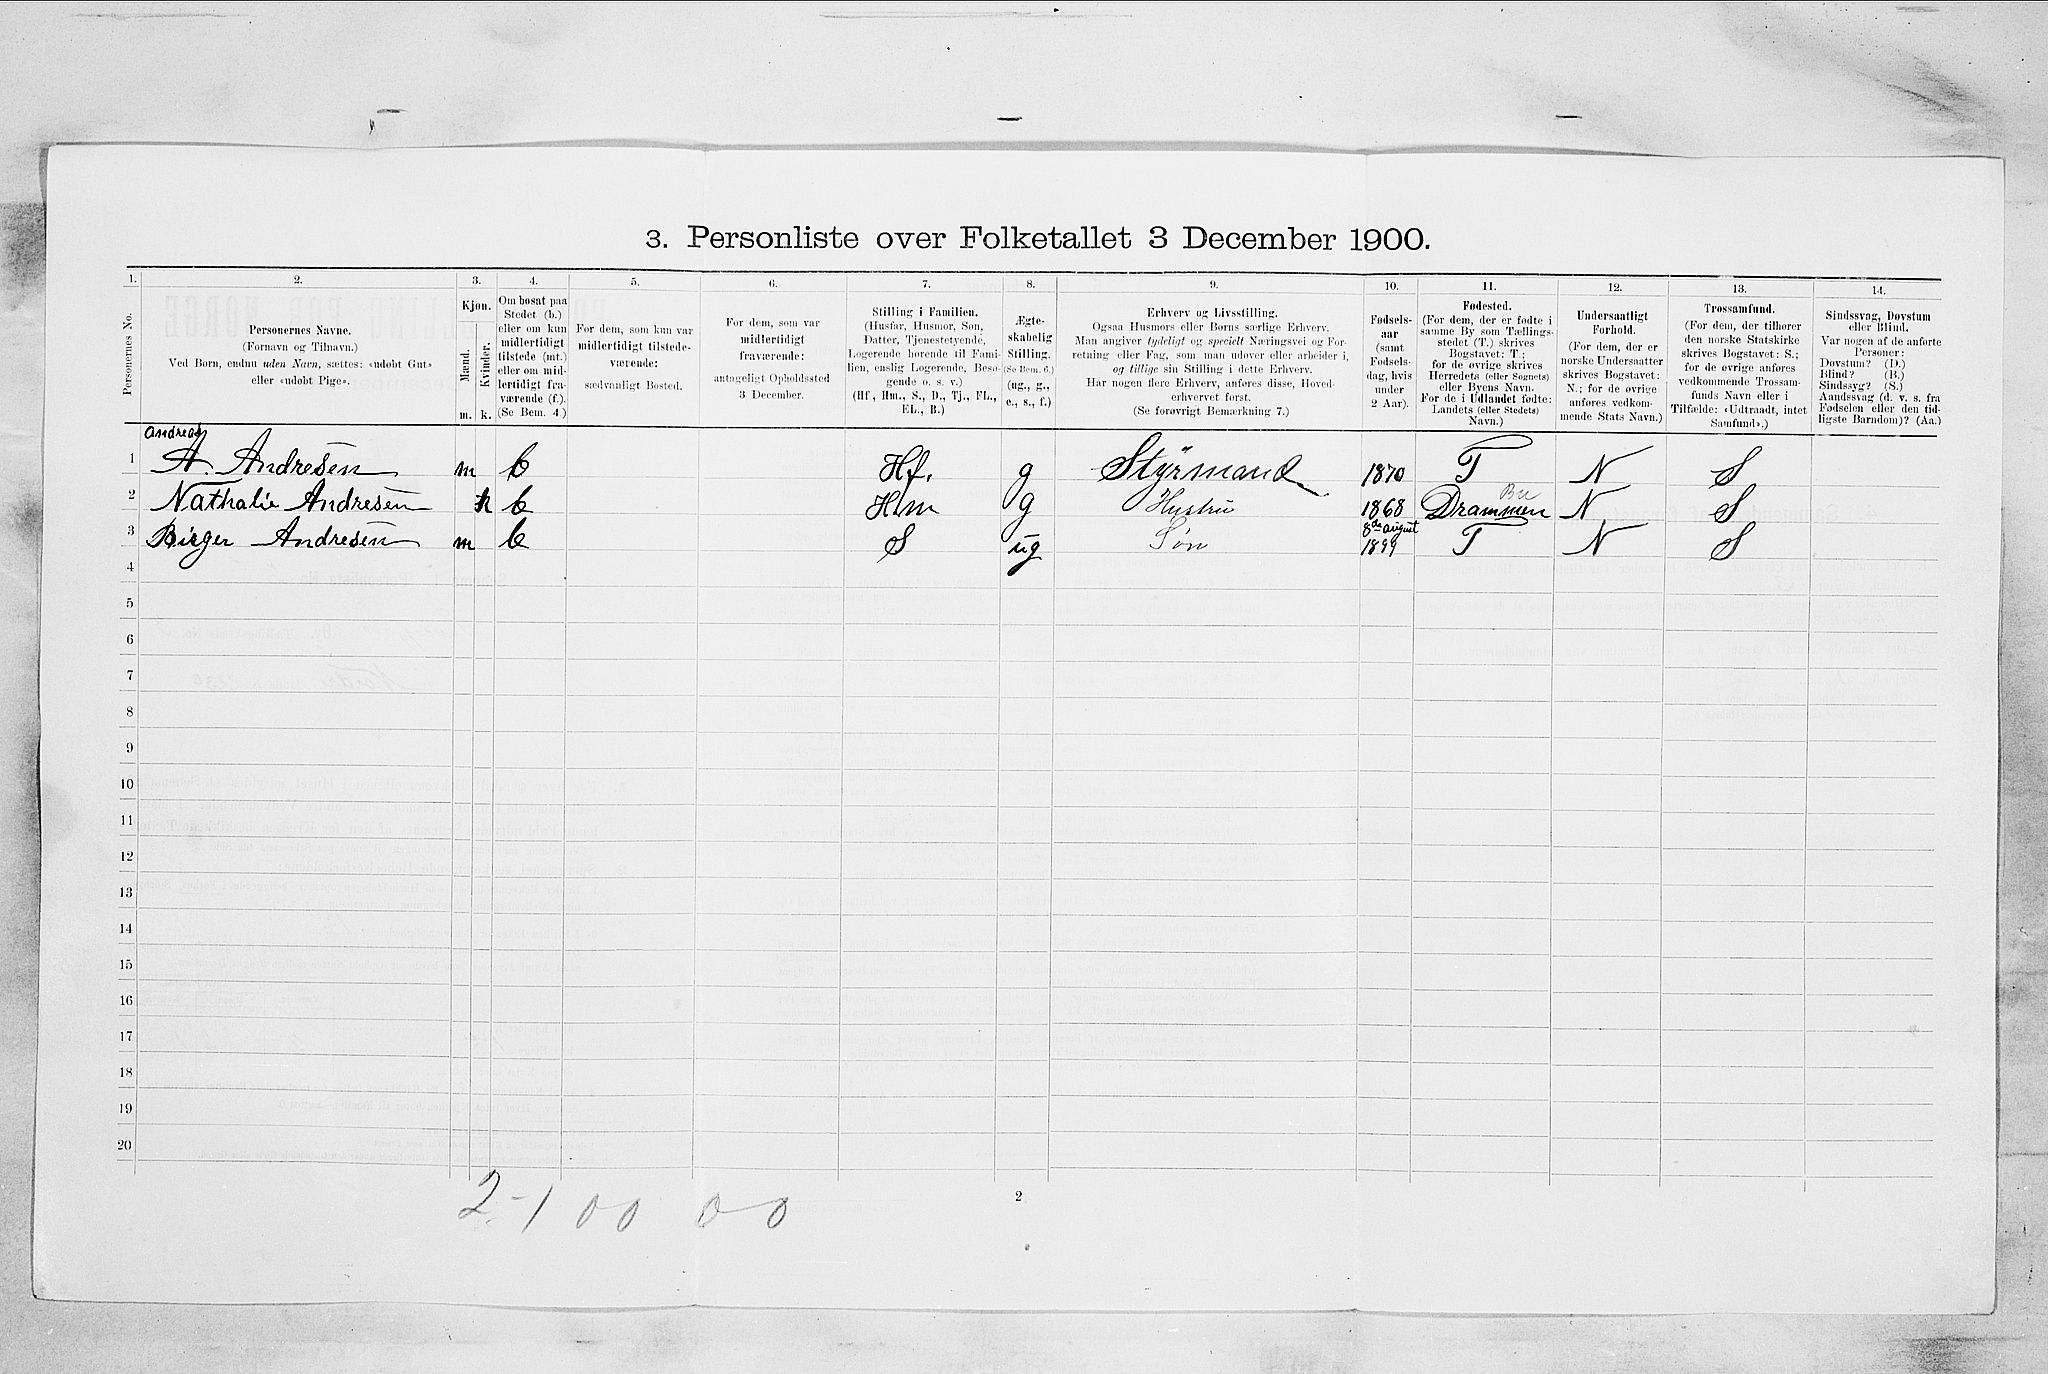 3. Personliste over Folketallet 3 December 1900.
1. 2. 3. 4. 5. 6. 7. 8. 9. 10. 11. 12. 13. 14.
Personernes No.
Personernes Navne.
(Fornavn og Tilnavn.)
Ved Børn, endnu uden Navn, sættes: «udøbt Gut»
eller «udøbt Pige».
Kjøn.
Mænd.
Kvinder.
m. k.
Om bosat paa
Stedet (b.)
eller om kun
midlertidigt
tilstede (mt.)
eller om mid-
lertidigt fra-
værende (f.).
(Se Bem. 4.)
For dem, som kun var
midlertidigt tilstede-
værende:
sædvanligt Bosted.
For dem, som var
midlertidigt
fraværende:
antageligt Opholdssted
3 December.
Stilling i Familien.
(Husfar, Husmor, Søn,
Datter, Tjenestetyende,
Logerende hørende til Fami-
lien, enslig Logerende, Besø-
gende o. s. v.)
(Hf., Hm., S., D., Tj., FL.,
EL., B.)
Ægte-
skabelig
Stilling.
(Se Bem. 6.)
(ug., g.,
e., s., f.)
Erhverv og Livsstilling.
Ogsaa Husmors eller Børns særlige Erhverv.
Man angiver tydeligt og specielt Næringsvei og For-
retning eller Fag, som man udøver eller arbeider i,
og tillige sin Stilling i dette Erhverv.
Har nogen flere Erhverv, anføres disse, Hoved-
erhvervet først.
(Se forøvrigt Bemærkning 7.)
Fødsels-
aar
(samt
Fødsels-
dag, hvis
under
2 Aar).
Fødested.
(For dem, der er fødte i
samme By som Tællings-
stedet (T.) skrives
Bogstavet: T;
for de øvrige skrives
Herredets (eller Sognets)
eller Byens Navn.
For de i Udlandet fødte:
Landets (eller Stedets)
Navn.)
Undersaatligt
Forhold.
(For dem, der er
norske Undersaatter
skrives Bogstavet:
N.; for de øvrige
anføres vedkom-
mende Stats Navn.)
Trossamfund.
(For dem, der tilhører
den norske Statskirke
skrives Bogstavet: S.;
for de øvrige anføres
vedkommende Trossam-
funds Navn eller i
Tilfælde: «Udtraadt, intet
Samfund».)
Sindssvag, Døvstum
eller Blind.
Var nogen af de anførte
Personer:
Døvstum? (D.)
Blind? (B.)
Sindssyg? (S.)
Aandssvag (d. v. s. fra
Fødselen eller den tid-
ligste Barndom)? (Aa.)
Andreas
1 A. Andresen m b Hf. g Styrmand 1870 T N S
2 Nathalie Andresen k b Hm g Hustru 1868 Drammen N S
8de august
3 Birger Andresen m b S ug Søn 1899 T N S
4
5
6
7
8
9
10
11
12
13
14
15
16
17
18
19
20
2-1 00 00
2